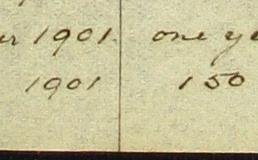 er 1901. one ye
1901 150